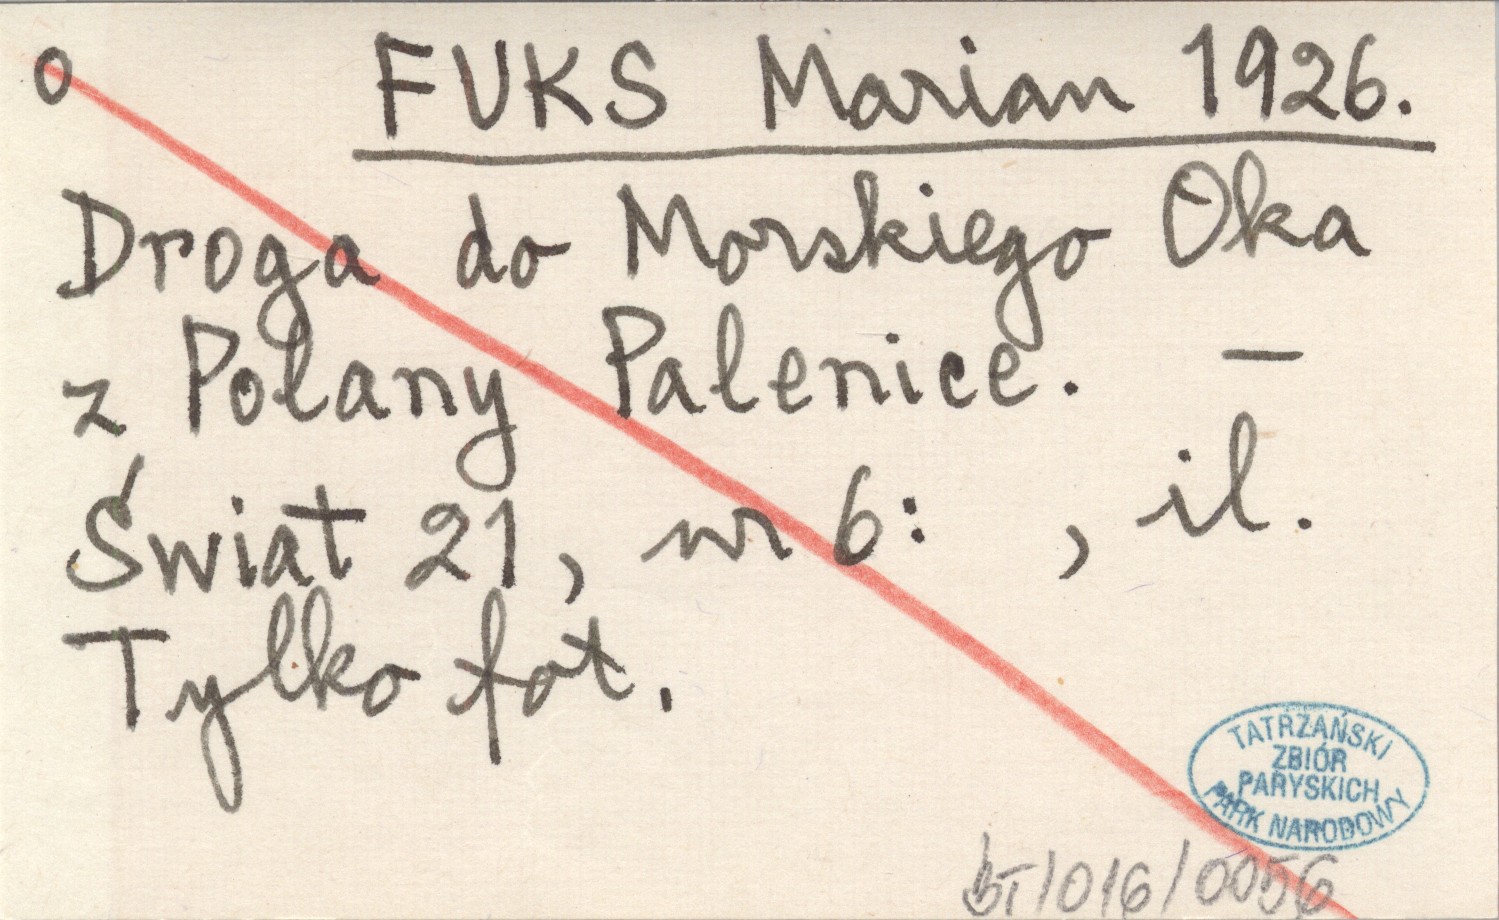 o FUKS Marian 1926.
Droga do Morskiego Oka
z Polany Palenice. –
Świat 21, nr 6: , il.
Tylko fot.
TATRZAŃSKI
ZBIÓR
PARYSKICH
PARK NARODOWY
BT/016/0056